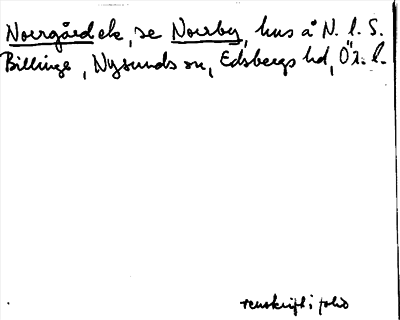 Norrgårdek, se Norrby, hus å N. l. S.
Billinge, Nysunds sn, Edsbergs hd, Ör. l.
renskrift i folio